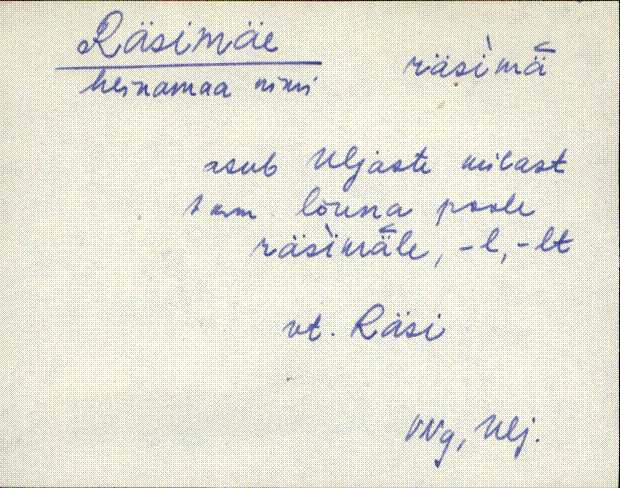 Räsimäe räsìmä
heinamaa nimi
asub Uljaste külast
1 km lõuna poole
räsìmäle, -l, -lt
vt. Räsi
VNg, Ulj.